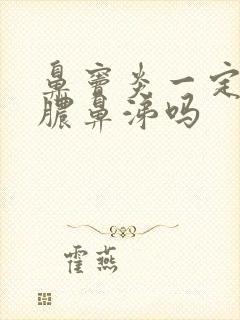 鼻窦炎一定
脓鼻涕吗
霍燕